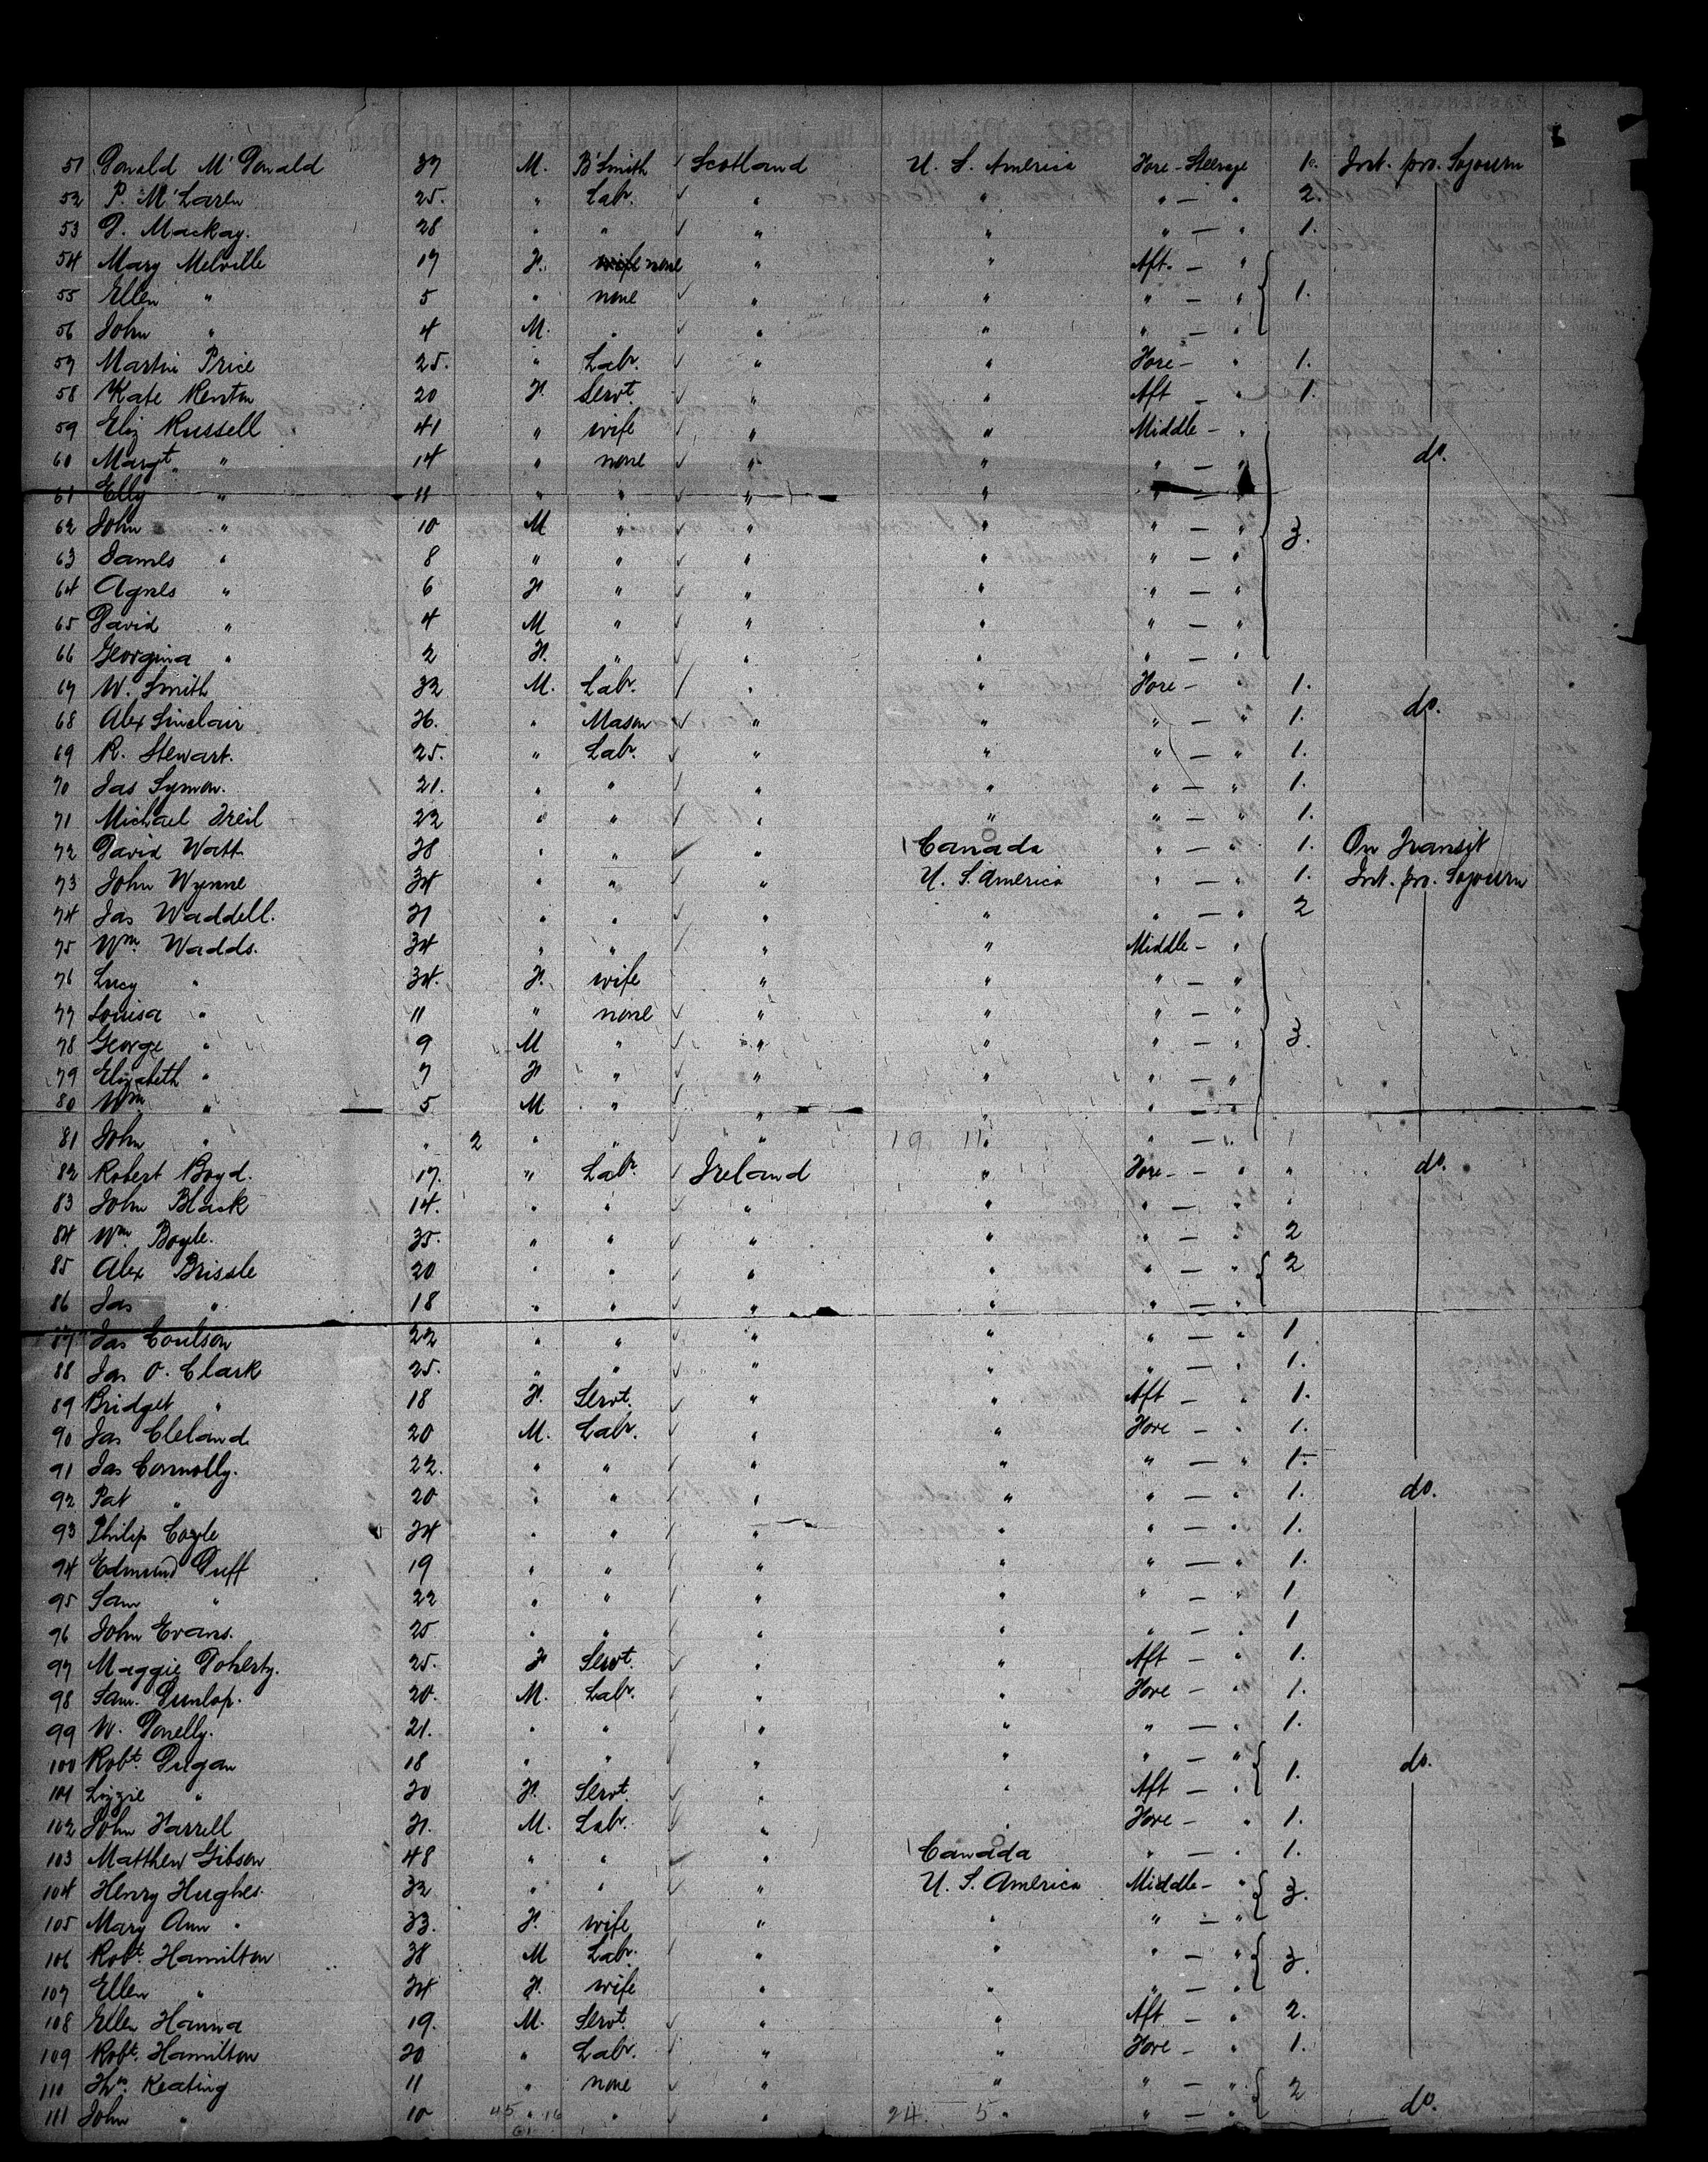 51 Donald M'Donald 37 M. B'Smith Scotland U. S. America Fore - Steerage 1. Int. pro. Sojourn
52 P. M'Laren 25. " Lab. " " " — " 2.
53 D. Mackay. 28 " " " " " — " 1.
54 Mary Melville 17 F. none " " Aft. — "
55 Ellen " 5 " none " " " — " 1.
56 John " 4 M. " " " " — "
57 Martin Price 25. " Labr. " " Fore - " 1.
58 Kate Renton 20 F. Servt. " " Aft — " 1.
59 Eliz Russell 41 " wife " " Middle - "
60 Margt. " 14 " none " " " — " do.
61 Elly " 11 " " " " " — "
62 John " 10 M " " " " — " 3.
63 James " 8 " " " " " — "
64 Agnes " 6 F " " " " — "
65 David " 4 M " " " " — "
66 Georgina " 2 F. " " " " — "
67 W. Smith 32 M. Labr. " " Fore - " 1.
68 Alex Sinclair 36. " Mason " " " — " 1. do.
69 R. Stewart. 25. " Labr. " " " — " 1.
70 Jas Symon. 21. " " " " " — " 1.
71 Michael 22 " " " " " — " 1.
72 David Watt 38 " " " Canada " — " 1. On Transit
73 John Wynne 34 " " " U. S. America " — " 1. Int. pro. Sojourn
74 Jas Waddell. 31 " " " " " — " 2
75 Wm. Wadds. 34 " " " " Middle - "
76 Lucy " 34. F. wife " " " — "
77 Louisa " 11 " none " " " — "
78 George " 9 M " " " " — " 3.
79 Elizabeth " 7 F " " " " — "
80 Wm " 5 M " " " " — "
81 John " " 2 " " " 19 11 " " — "
82 Robert Boyd. 17. " Labr. Ireland " Fore - " " do.
83 John Black 14. " " " " " — " "
84 Wm. Boyle. 35. " " " " " — " 2
85 Alex Brissle 20 " " " " " — " 2
86 Jas " 18 " " " " " — "
87 Jas Coulson 22 " " " " " — " 1.
88 Jas O. Clark 25. " " " " " — " 1.
89 Bridget " 18 F. Servt. " " Aft — " 1.
90 Jas Cleland 20 M. Labr. " " Fore - " 1.
91 Jas Connolly. 22. " " " " " — " 1.
92 Pat " 20 " " " " " — " 1. do.
93 Philip Coyle 24 " " " " " — " 1.
94 Edmund Duff 19 " " " " " — " 1.
95 Sam " 22 " " " " " — " 1
96 John Evans. 25 " " " " " — " 1
97 Maggie Doherty. 25. F Servt. " " Aft — " 1.
98 Sam. Dunlop. 20. M. Labr. " " Fore — " 1.
99 W. Donelly. 21. " " " " " — " 1.
100 Robt. Dugan 18 " " " " " — " 1. do.
101 Lizzie " 20 F. Servt. " " Aft — "
102 John Farrell 21. M. Labr. " " Fore - " 1.
103 Matthew Gibson 48 " " " Canada " — " 1.
104 Henry Hughes. 32 " " " U. S. America Middle - " 3.
105 Mary Ann " 33. F. wife " " " — "
106 Robt. Hamilton 38 M Labr. " " " — " 3.
107 Ellen " 34 F. wife " " " — "
108 Ellen Hanna 19. M. Servt. " " Aft — " 2.
109 Robt. Hamilton 20 " Labr. " " Fore - " 1.
110 Ths. Keating 11 " none " " " — " 2
111 John " 10 45 " 16 " " 24. 5 " " — " do.